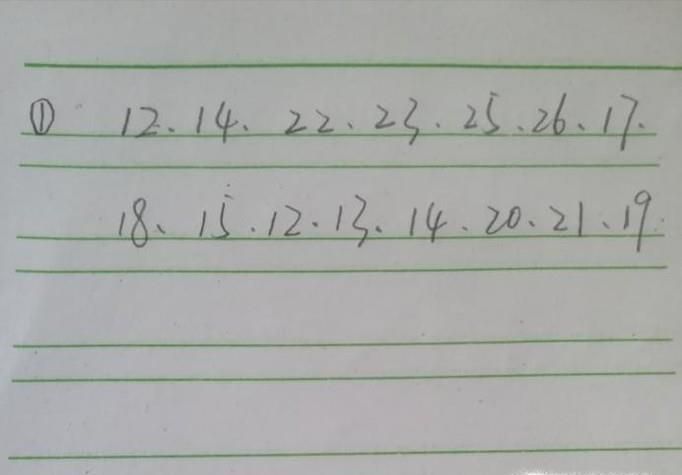 ① 12、14、22、23、25、26、17.
18、15.12.13、14、20、21、19.